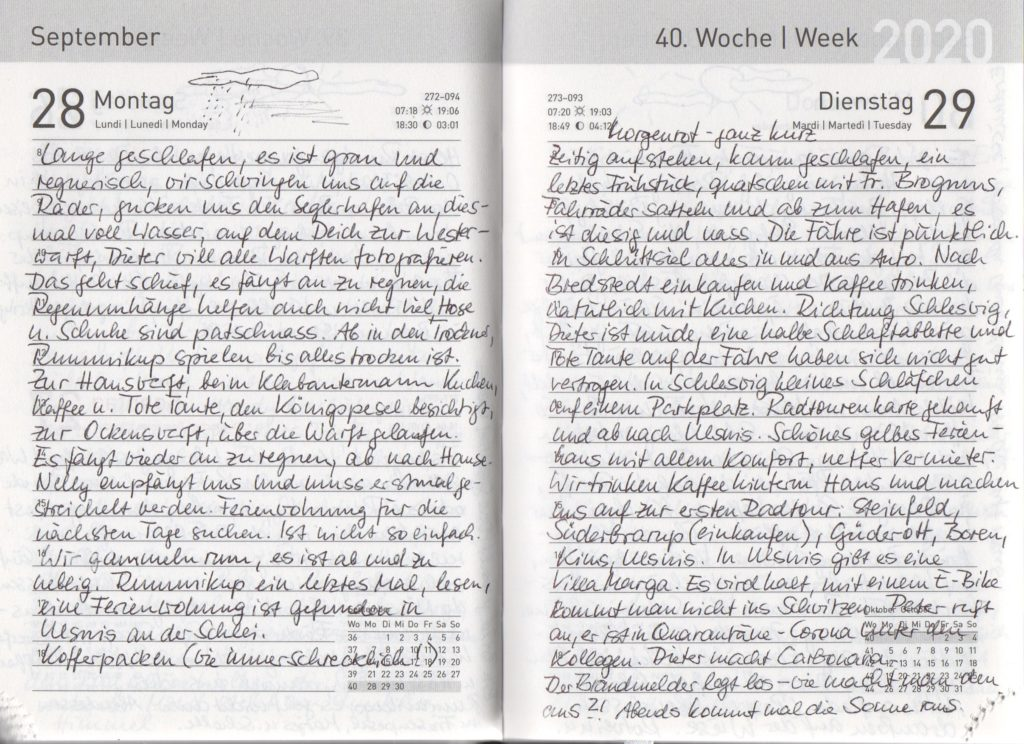 September
28 Montag
Lundi | Lunedì | Monday
272-094
07:18 19:06
18:30 03:01
Lange geschlafen, es ist grau und
regnerisch, wir schwingen uns auf die
Räder, gucken uns den Seglerhafen an, dies-
mal voll Wasser, auf dem Deich zur Wester-
warft, Dieter will alle Warften fotografieren.
Das geht schief, es fängt an zu regnen, die
Regenumhänge helfen auch nicht viel, Hose
u. Schuhe sind patschnass. Ab in den Trockner,
Rummikup spielen bis alles trocken ist.
Zur Hanswarft, beim Klabautermann Kuchen,
Kaffee u. Tote Tante, den Königspesel besichtigt,
zur Ockenswarft, über die Warft gelaufen.
Es fängt wieder an zu regnen, ab nach Hause.
Nelly empfängt uns und muss erstmal ge-
streichelt werden. Ferienwohnung für die
nächsten Tage suchen. Ist nicht so einfach.
Wir gammeln rum, es ist ab und zu
neblig, Rummikup ein letztes Mal, lesen,
eine Ferienwohnung ist gefunden in
Ulsnis an der Schlei.
Kofferpacken (wie immer schrecklich!)
Wo Mo Di Mi Do Fr Sa So
36 1 2 3 4 5 6
39 21 22 23 24 25 26 27
40 28 29 30
40. Woche | Week 2020
273-093
07:20 19:03
18:49 04:12
Dienstag 29
Mardi | Martedì | Tuesday
Morgenrot - ganz kurz
Zeitig aufstehen, kaum geschlafen, ein
letztes Frühstück, quatschen mit Fr. Brogmus,
Fahrräder satteln und ab zum Hafen, es
ist diesig und nass. Die Fähre ist pünktlich.
In Schlüttsiel alles in und aufs Auto. Nach
Bredstedt einkaufen und Kaffee trinken,
natürlich mit Kuchen. Richtung Schleswig,
Dieter ist müde, eine halbe Schlaftablette und
Tote Tante auf der Fähre haben sich nicht gut
vertragen. In Schleswig kleines Schläfchen
auf einem Parkplatz. Radtourenkarte gekauft
und ab nach Ulsnis. Schönes gelbes Ferien-
haus mit allem Komfort, netter Vermieter.
Wir trinken Kaffee hinterm Haus und machen
uns auf zur ersten Radtour. Steinfeld,
Süderbrarup (einkaufen), Güderott, Boren,
Kius, Ulsnis. In Ulsnis gibt es eine
Villa Marga. Es wird kalt, mit einem E-Bike
kommt man nicht ins Schwitzen. Peter ruft
an, er ist in Quarantäne - Corona unter den
Kollegen. Dieter macht Carbonara.
Der Brandmelder legt los - wie macht man den
aus?! Abends kommt mal die Sonne raus.
Oktober
Wo Mo Di Mi Do Fr Sa So